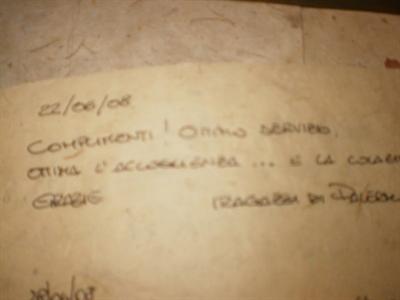 22/06/08
COMPLIMENTI! OTTIMO SERVIZIO,
OTTIMA L'ACCOGLIENZA ... E LA COLAZI
GRAZIE I RAGAZZI DI PALERM